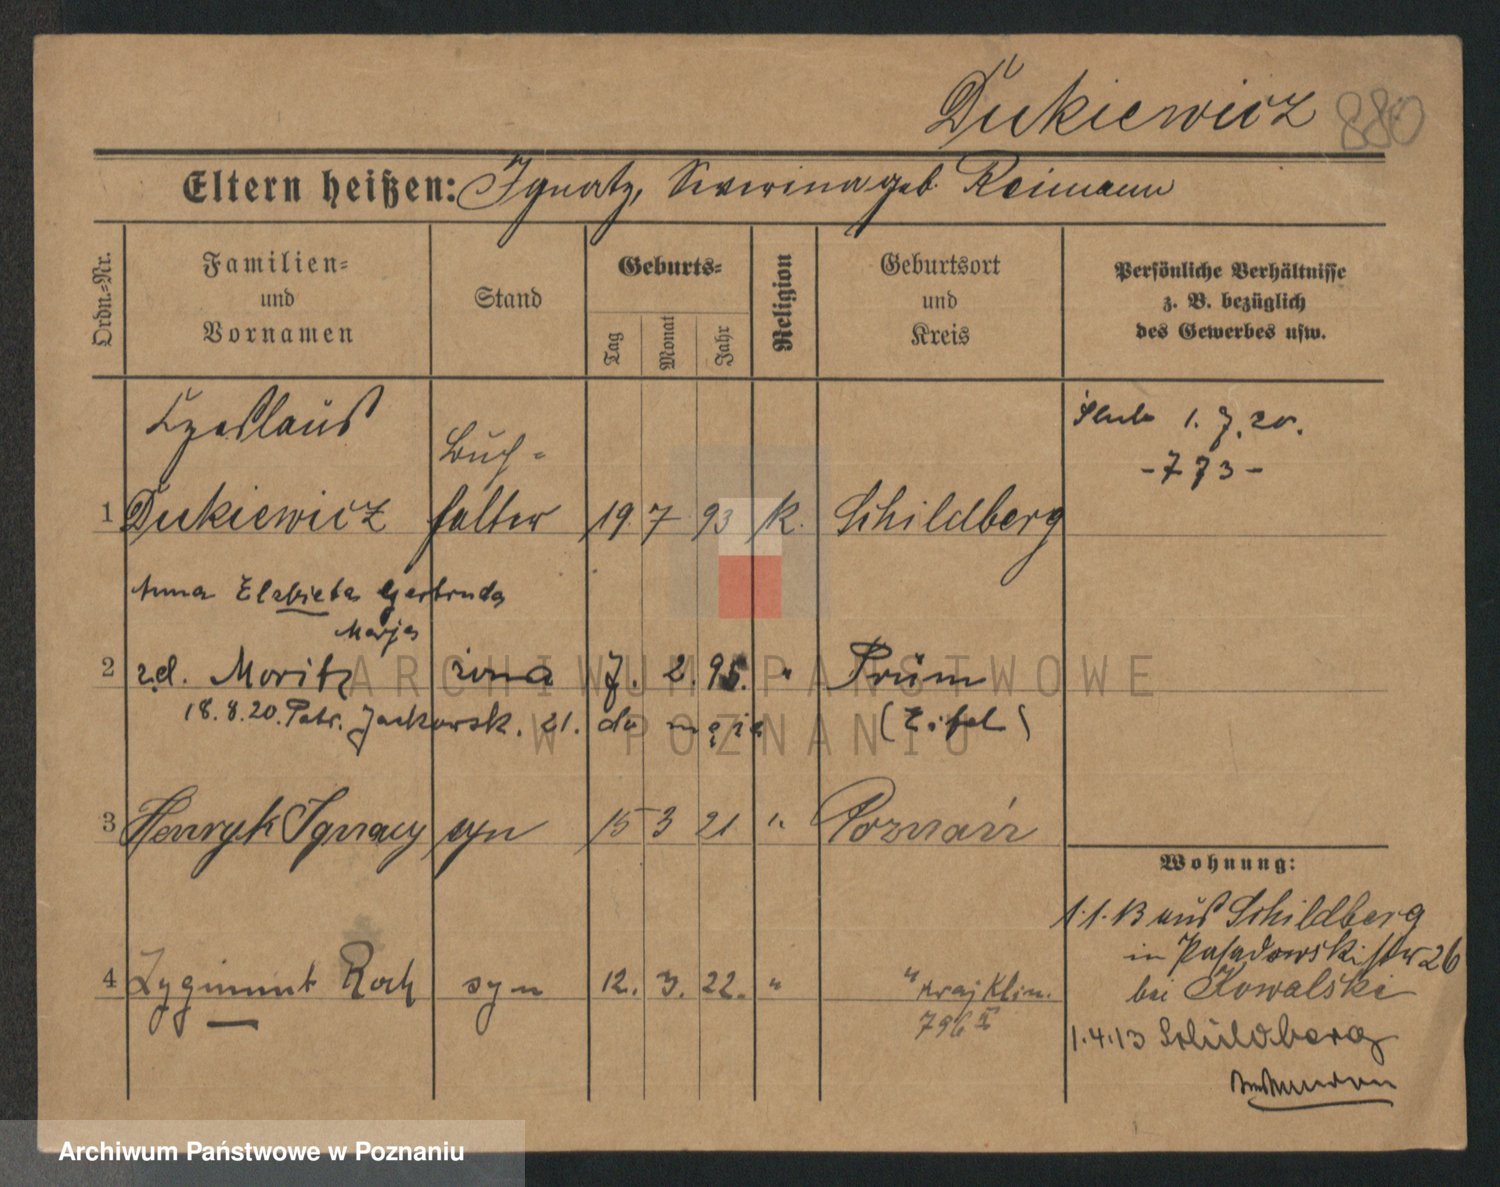 Dukiewicz 880
Eltern heißen: Ignatz, Severina geb. Reimann
Ordn.-Nr.
Familien-
und
Vornamen
Stand
Geburts-
Tag
Monat
Jahr
Religion
Geburtsort
und
Kreis
Persönliche Verhältnisse
z. B. bezüglich
des Gewerbes usw.
Czeslaus
Buch-
1 Dukiewicz halter 19 7 93 k. Schildberg
Ślub 1. 7. 20.
- 773 -
Anna Elżbieta Gertruda
Marja
2 z.d. Moritz żona 7. 2. 95. " Prüm
18.8.20. Patr. Jackowsk. 21. do męża (Eifel)
3 Henryk Ignacy syn 15 3 21 " Poznań
4 Zygmunt Roch syn 12. 3. 22. " "
Kraj Klin.
796 II
Wohnung:
1.1.13 aus Schildberg
in Posadowskistr 26
bei Kowalski
1.4.13 Schildberg
ARCHIWUM PAŃSTWOWE
W POZNANIU
Archiwum Państwowe w Poznaniu